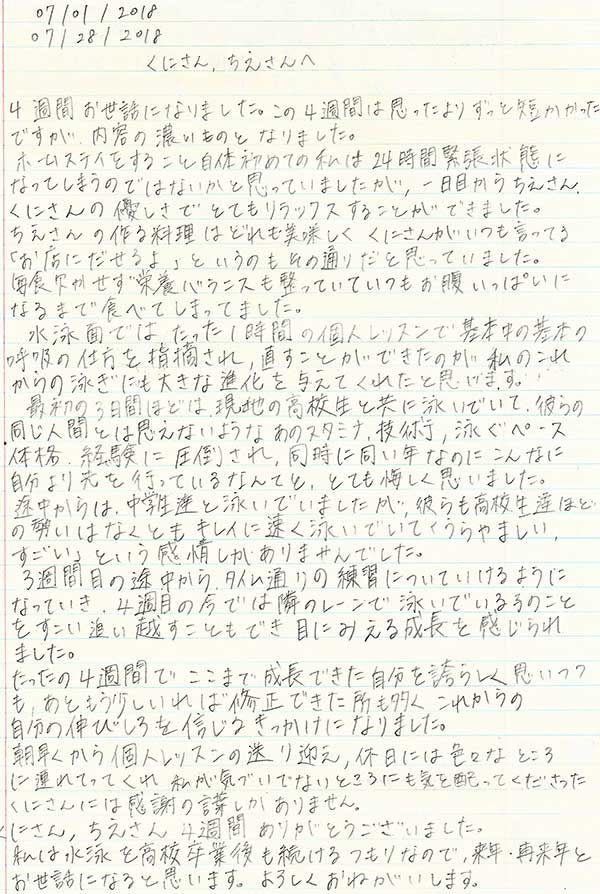 07/01/2018
07/28/2018
くにさん、ちえさんへ
4週間お世話になりました。この4週間は思ったよりずっと短かかった
ですが、内容の濃いものとなりました。
ホームステイをすること自体初めての私は24時間緊張状態に
なってしまうのではないかと思っていましたが、一日目からちえさん、
くにさんの優しさでとてもリラックスすることができました。
ちえさんの作る料理はどれも美味しくくにさんがいつも言ってる
「お店にだせるよ」というのもその通りだと思っていました。
毎食欠かせず栄養バランスも整っていていつもお腹いっぱいに
なるまで食べてしまってました。
水泳面ではたった1時間の個人レッスンで基本中の基本の
呼吸の仕方を指摘され、直すことができたのが私のこれ
からの泳ぎにも大きな進化を与えてくれたと思います。
最初の3日間ほどは、現地の高校生と共に泳いでいて、彼らの
同じ人間とは思えないようなあのスタミナ、技術、泳ぐペース
体格、経験に圧倒され、同時に同い年なのにこんなに
自分より先を行っているなんてと、とても悔しく思いました。
途中からは、中学生達と泳いでいましたが、彼らも高校生達ほど
の勢いはなくともキレイに速く泳いでいて「うらやましい、
すごい」という感情しかありませんでした。
3週間目の途中から、タイム通りの練習についていけるように
なっていき、4週目の今では隣のレーンで泳いでいる子のこと
をすこい追い越すこともでき目にみえる成長を感じられ
ました。
たったの4週間でここまで成長できた自分を誇らしく思いつつ
も、あともう少しいれば修正できた所も多くこれからの
自分の伸びしろを信じるきっかけになりました。
朝早くから個人レッスンの送り迎え、休日には色々なところ
に連れてってくれ私が気づいでないところにも気を配ってくださった
くにさんには感謝の言葉しかありません。
くにさん、ちえさん4週間ありがとうございました。
私は水泳を高校卒業後も続けるつもりなので、来年・再来年と
お世話になると思います。よろしくおねがいします。